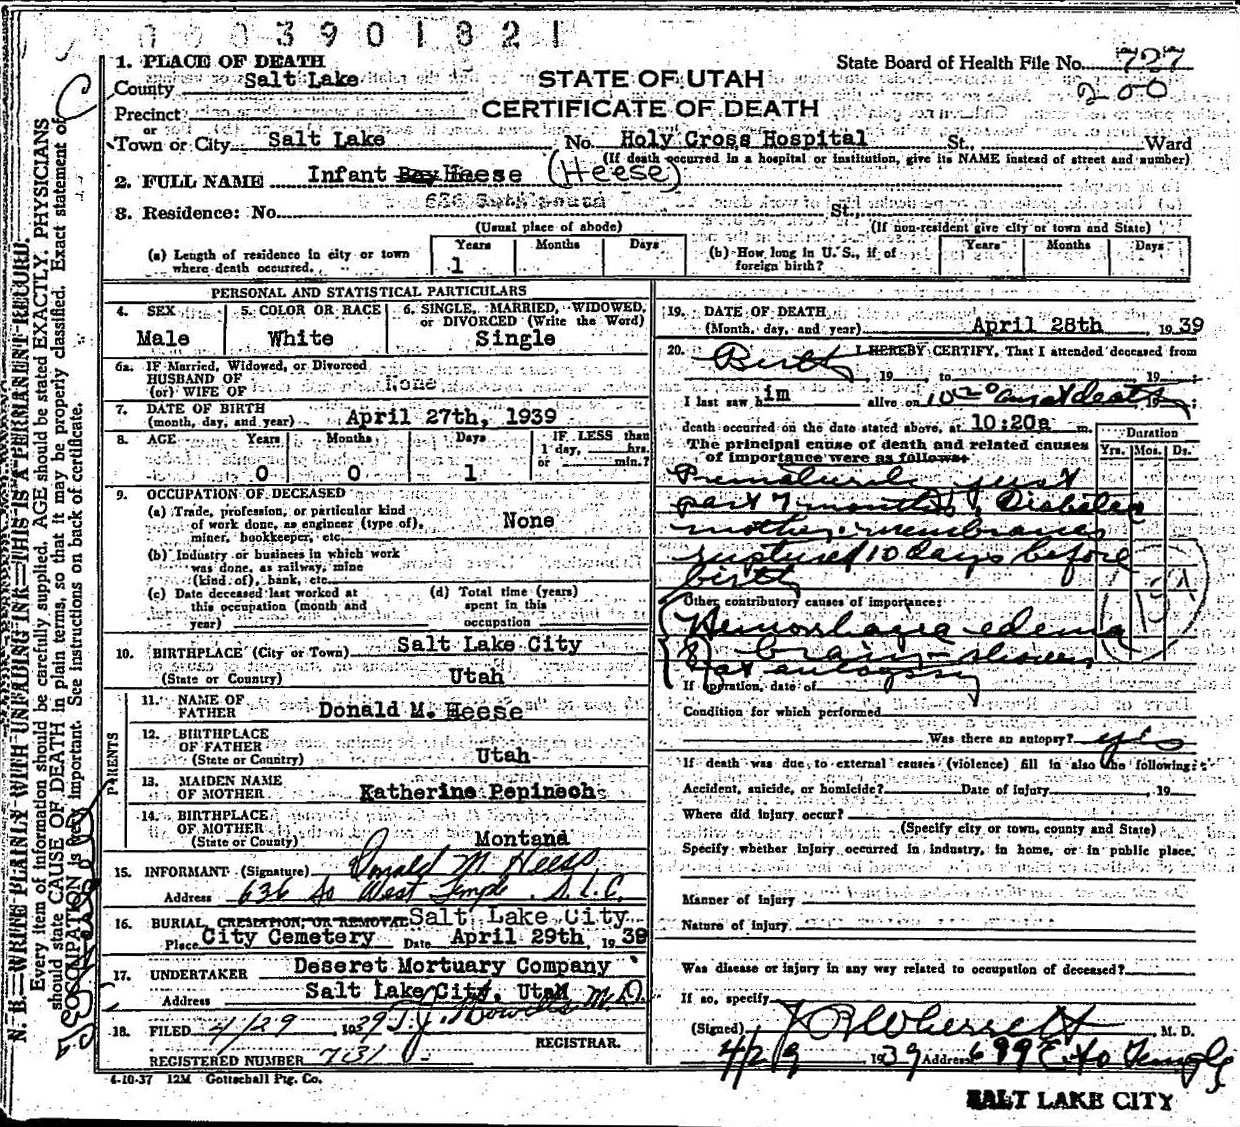 0003901821
1. PLACE OF DEATH
County Salt Lake
STATE OF UTAH
State Board of Health File No. 727
200
Precinct
CERTIFICATE OF DEATH
or
Town or City Salt Lake No. Holy Cross Hospital St., Ward
(If death occurred in a hospital or institution, give its NAME instead of street and number)
2. FULL NAME Infant Boy Heese (Heese)
3. Residence: No. St.,
(Usual place of abode) (If non-resident give city or town and State)
(a) Length of residence in city or town where death occurred. Years 1 Months Days
(b) How long in U. S., if of foreign birth? Years Months Days
PERSONAL AND STATISTICAL PARTICULARS
4. SEX Male
5. COLOR OR RACE White
6. SINGLE, MARRIED, WIDOWED, or DIVORCED (Write the Word) Single
6a. IF Married, Widowed, or Divorced
HUSBAND OF
(or) WIFE OF None
7. DATE OF BIRTH
(month, day, and year) April 27th, 1939
8. AGE Years 0 Months 0 Days 1 IF LESS than 1 day, hrs. or min.?
9. OCCUPATION OF DECEASED
(a) Trade, profession, or particular kind of work done, as engineer (type of), miner, bookkeeper, etc. None
(b) Industry or business in which work was done, as railway, mine (kind of), bank, etc.
(c) Date deceased last worked at this occupation (month and year)
(d) Total time (years) spent in this occupation
10. BIRTHPLACE (City or Town) Salt Lake City
(State or Country) Utah
PARENTS
11. NAME OF FATHER Donald M. Heese
12. BIRTHPLACE OF FATHER (State or Country) Utah
13. MAIDEN NAME OF MOTHER Katherine Pepinech
14. BIRTHPLACE OF MOTHER (State or County) Montana
15. INFORMANT (Signature) Donald M Heese
Address 636 So West Temple S.L.C.
16. BURIAL, CREMATION, OR REMOVAL Salt Lake City
Place City Cemetery Date April 29th, 1939
17. UNDERTAKER Deseret Mortuary Company
Address Salt Lake City, Utah
18. FILED 4/29, 1939 T.J. Howells M.D.
REGISTRAR.
REGISTERED NUMBER 731
4-10-37 12M Gottschall Ptg. Co.
19. DATE OF DEATH
(Month, day, and year) April 28th 1939
20. I HEREBY CERTIFY, That I attended deceased from
Birth, 19 , to , 19 ;
I last saw him alive on death, 19 ;
death occurred on the date stated above, at 10:20a m.
The principal cause of death and related causes of importance were as follows:
Duration
Yrs. Mos. Ds.
Prematurely just
past 7 months. Diabetic
mother. membranes
ruptured 10 days before
birth
Other contributory causes of importance:
Hemorrhagic edema
brain shown
at autopsy
If operation, date of
Condition for which performed
Was there an autopsy? yes
If death was due to external causes (violence) fill in also the following:
Accident, suicide, or homicide? Date of injury , 19
Where did injury occur?
(Specify city or town, county and State)
Specify whether injury occurred in industry, in home, or in public place.
Manner of injury
Nature of injury
Was disease or injury in any way related to occupation of deceased?
If so, specify
(Signed) M. D.
4/29, 1939 Address 699 E So Temple
SALT LAKE CITY
N. B.—WRITE PLAINLY WITH UNFADING INK—THIS IS A PERMANENT RECORD.
Every item of information should be carefully supplied. AGE should be stated EXACTLY. PHYSICIANS
should state CAUSE OF DEATH in plain terms, so that it may be properly classified. Exact statement of
OCCUPATION is very important. See instructions on back of certificate.